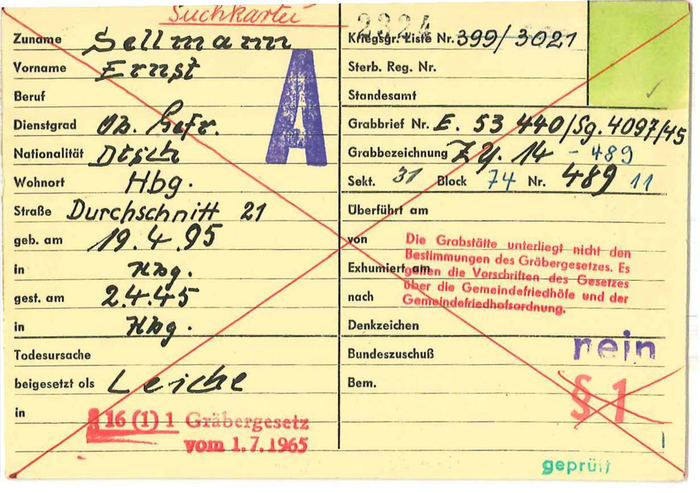 Suchkartei
Zuname Sellmann
Vorname Ernst
Beruf
Dienstgrad Ob. Gefr.
Nationalität Dtsch
Wohnort Hbg.
Straße Durchschnitt 21
geb. am 19.4.95
in Hbg.
gest. am 2.4.45
in Hbg.
Todesursache
beigesetzt als Leiche
in
§ 16 (1) 1 Gräbergesetz
vom 1.7.1965
A
Kriegsgr. Liste Nr. 399/3021
Sterb. Reg. Nr.
Standesamt
Grabbrief Nr. E. 53 440/Sg. 4097/45
Grabbezeichnung Zy. 14 - 489
Sekt. 31 Block 74 Nr. 489 11
Überführt am
von
Exhumiert am
nach
Die Grabstätte unterliegt nicht den
Bestimmungen des Gräbergesetzes. Es
gelten die Vorschriften des Gesetzes
über die Gemeindefriedhöfe und der
Gemeindefriedhofsordnung.
Denkzeichen
Bundeszuschuß rein
Bem. § 1
geprüft